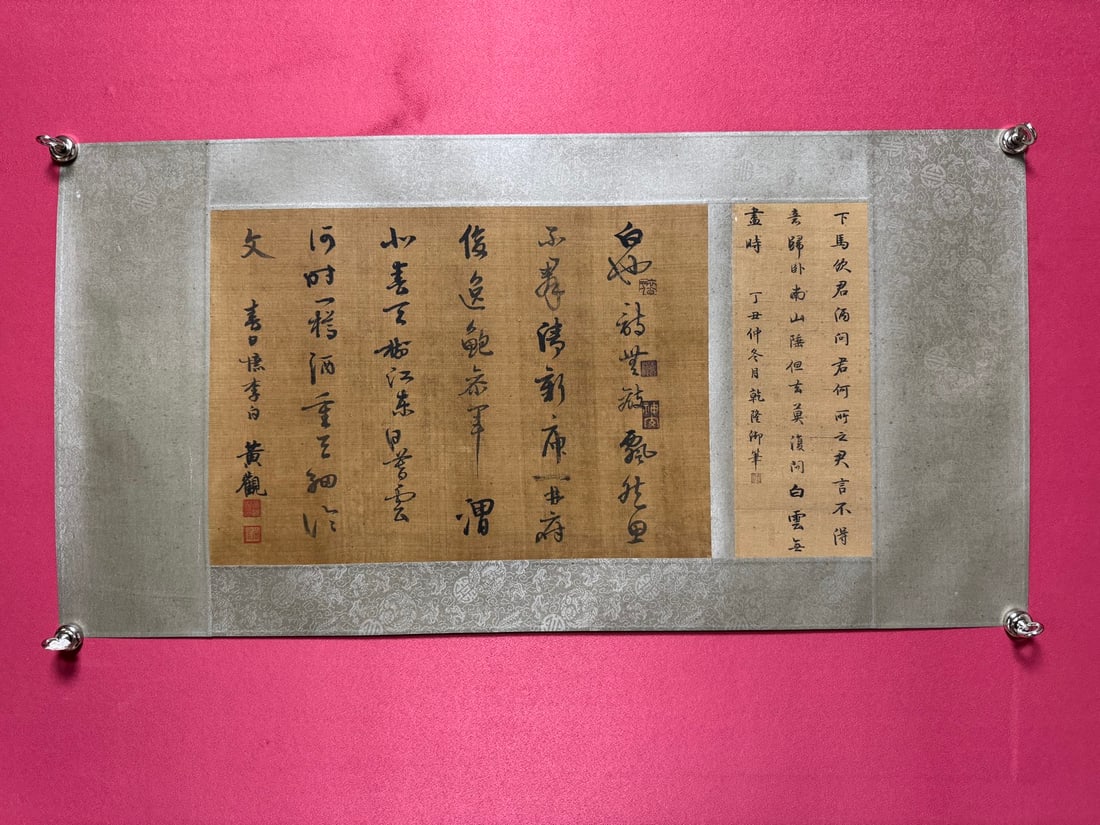 下馬飲君酒問君何所之君言不得
意歸卧南山陲但去莫復問白雲無
盡時 丁丑仲冬月乾隆御筆
白也詩無敵飄然思
不羣清新庾開府
俊逸鮑參軍 渭
北春天樹江東日暮雲
何時一樽酒重與細論
文 春日憶李白 黃觀